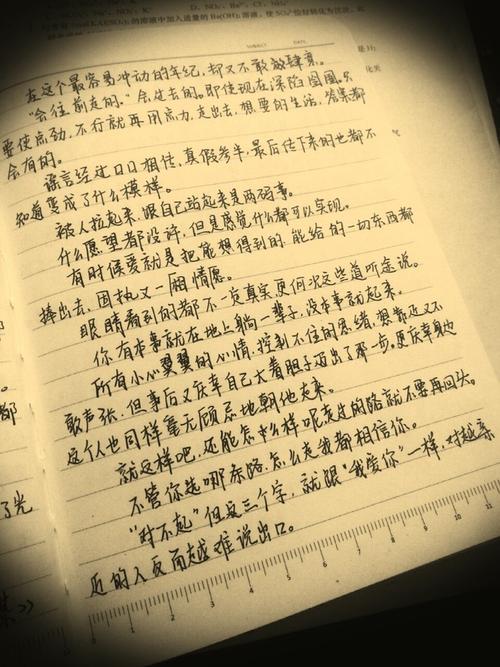 SUBJECT DATE
在这个最容易冲动的年纪，却又不敢放肆哀。
“会往前走的。”会过去的。即使现在深陷囹圄。只
要使点劲，不行就再用点力，走出去，想要的生活，答案都
会有的。
谣言经过口口相传，真假参半，最后传下来的也都不
知道变成了什么模样。
被人拉起来，跟自己站起来是两码事。
什么愿望都没许，但是感觉什么都可以实现。
有时候爱就是把能想得到的，能给的一切东西都
捧出去，固执又一厢情愿。
眼睛看到的都不一定真实，更何况这些道听途说。
你有本事就在地上躺一辈子，没本事就起来。
所有小心翼翼的心情，控制不住的思绪，想戴还又不
敢声张，但事后又庆幸自己大着胆子迈出了那一步。更庆幸身边
这个人也同样毫无顾忌地朝他走来。
就这样吧，还能怎么样呢，走过的路就不要再回头。
不管你选哪条路，怎么走我都相信你。
“对不起”但这三个字，就跟“我爱你”一样，对越亲
近的人反而越难说出口。
都
了光
0 1 2 3 4 5 6 7 8 9 10 11